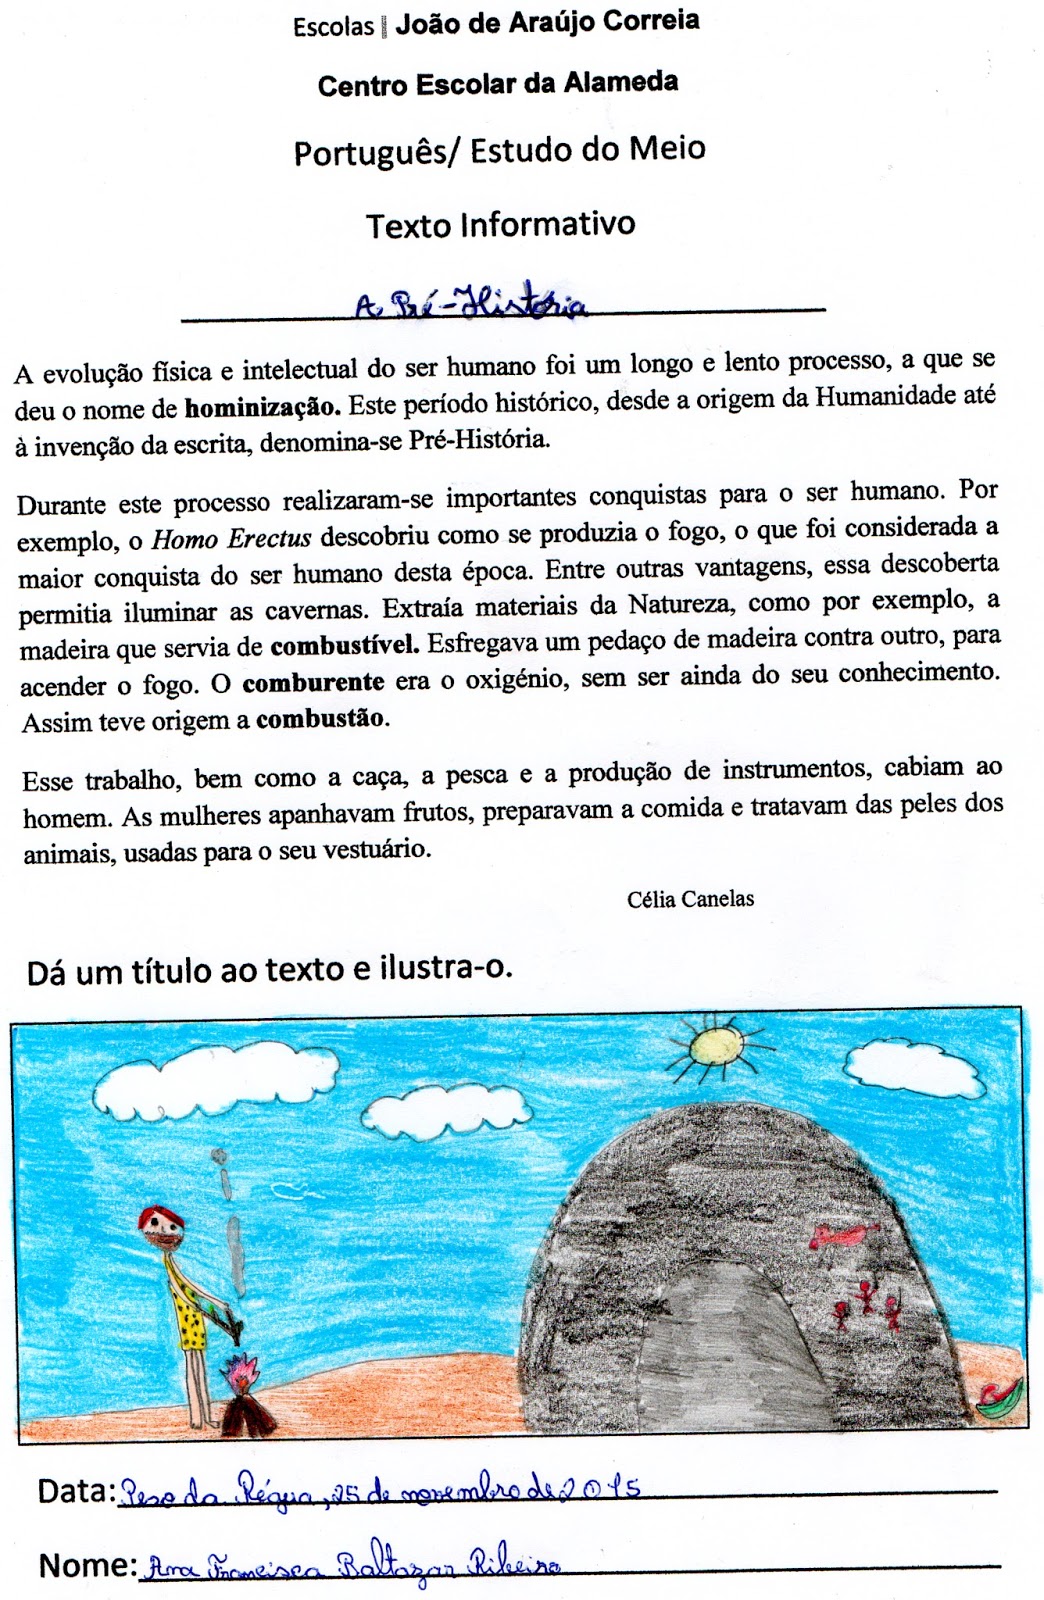 Escolas | João de Araújo Correia
Centro Escolar da Alameda
Português/ Estudo do Meio
Texto Informativo
A Pré-História
A evolução física e intelectual do ser humano foi um longo e lento processo, a que se
deu o nome de hominização. Este período histórico, desde a origem da Humanidade até
à invenção da escrita, denomina-se Pré-História.
Durante este processo realizaram-se importantes conquistas para o ser humano. Por
exemplo, o Homo Erectus descobriu como se produzia o fogo, o que foi considerada a
maior conquista do ser humano desta época. Entre outras vantagens, essa descoberta
permitia iluminar as cavernas. Extraía materiais da Natureza, como por exemplo, a
madeira que servia de combustível. Esfregava um pedaço de madeira contra outro, para
acender o fogo. O comburente era o oxigénio, sem ser ainda do seu conhecimento.
Assim teve origem a combustão.
Esse trabalho, bem como a caça, a pesca e a produção de instrumentos, cabiam ao
homem. As mulheres apanhavam frutos, preparavam a comida e tratavam das peles dos
animais, usadas para o seu vestuário.
Célia Canelas
Dá um título ao texto e ilustra-o.
Data: Peso da Régua, 25 de novembro de 2015
Nome: Ana Francisca Baltazar Ribeiro